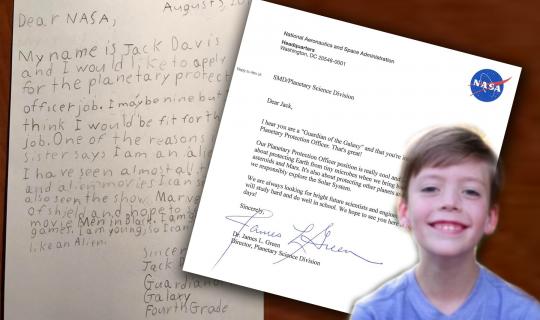 August 3, 2
Dear NASA,
My name is Jack Davis
and I would like to apply
for the planetary protect
officer job. I may be nine but
think I would be fit for th
job. One of the reasons
sister says I am an alie
I have seen almost all t
and al movies I can s
also seen the show. Marve
of shield and hope to s
movie Men in Black. I am
games. I am young, so I can
like an Alien.
Sincer
Jack
Guardian
Galaxy
Fourth Grade
National Aeronautics and Space Administration
Headquarters
Washington, DC 20546-0001
NASA
SMD/Planetary Science Division
Dear Jack,
I hear you are a "Guardian of the Galaxy" and that you're i
Planetary Protection Officer. That's great!
Our Planetary Protection Officer position is really cool and
about protecting Earth from tiny microbes when we bring b
asteroids and Mars. It's also about protecting other planets a
we responsibly explore the Solar System.
We are always looking for bright future scientists and engine
will study hard and do well in school. We hope to see you here
days!
Sincerely,
James L Green
Dr. James L. Green
Director, Planetary Science Division